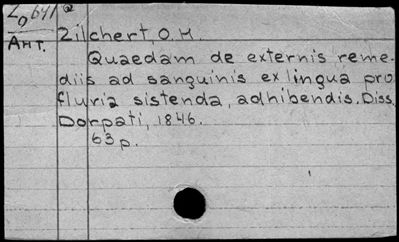 Zilchert, O.H.
Ант.
Quaedam de externis reme-
diis ad sanguinis ex lingua pro
fluvia sistenda, adhibendis. Diss.
Dorpati, 1846.
63 p.